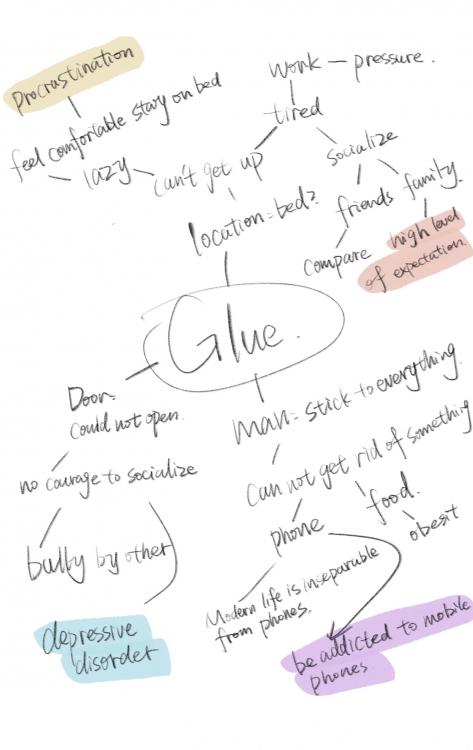 Procrastination
feel comforlable stary on bed
lazy
can't get up
work — pressure.
tired
socialize
friends
family.
compare
high level
of expectation
location = bed?
Glue.
Door =
could not open.
no courage to socialize
bully by other
depressive
disorder
man = stick to everything.
can not get rid of something
phone
food.
obesit
Modern life is inseparable
from phones.
be addicted to mobile
phones